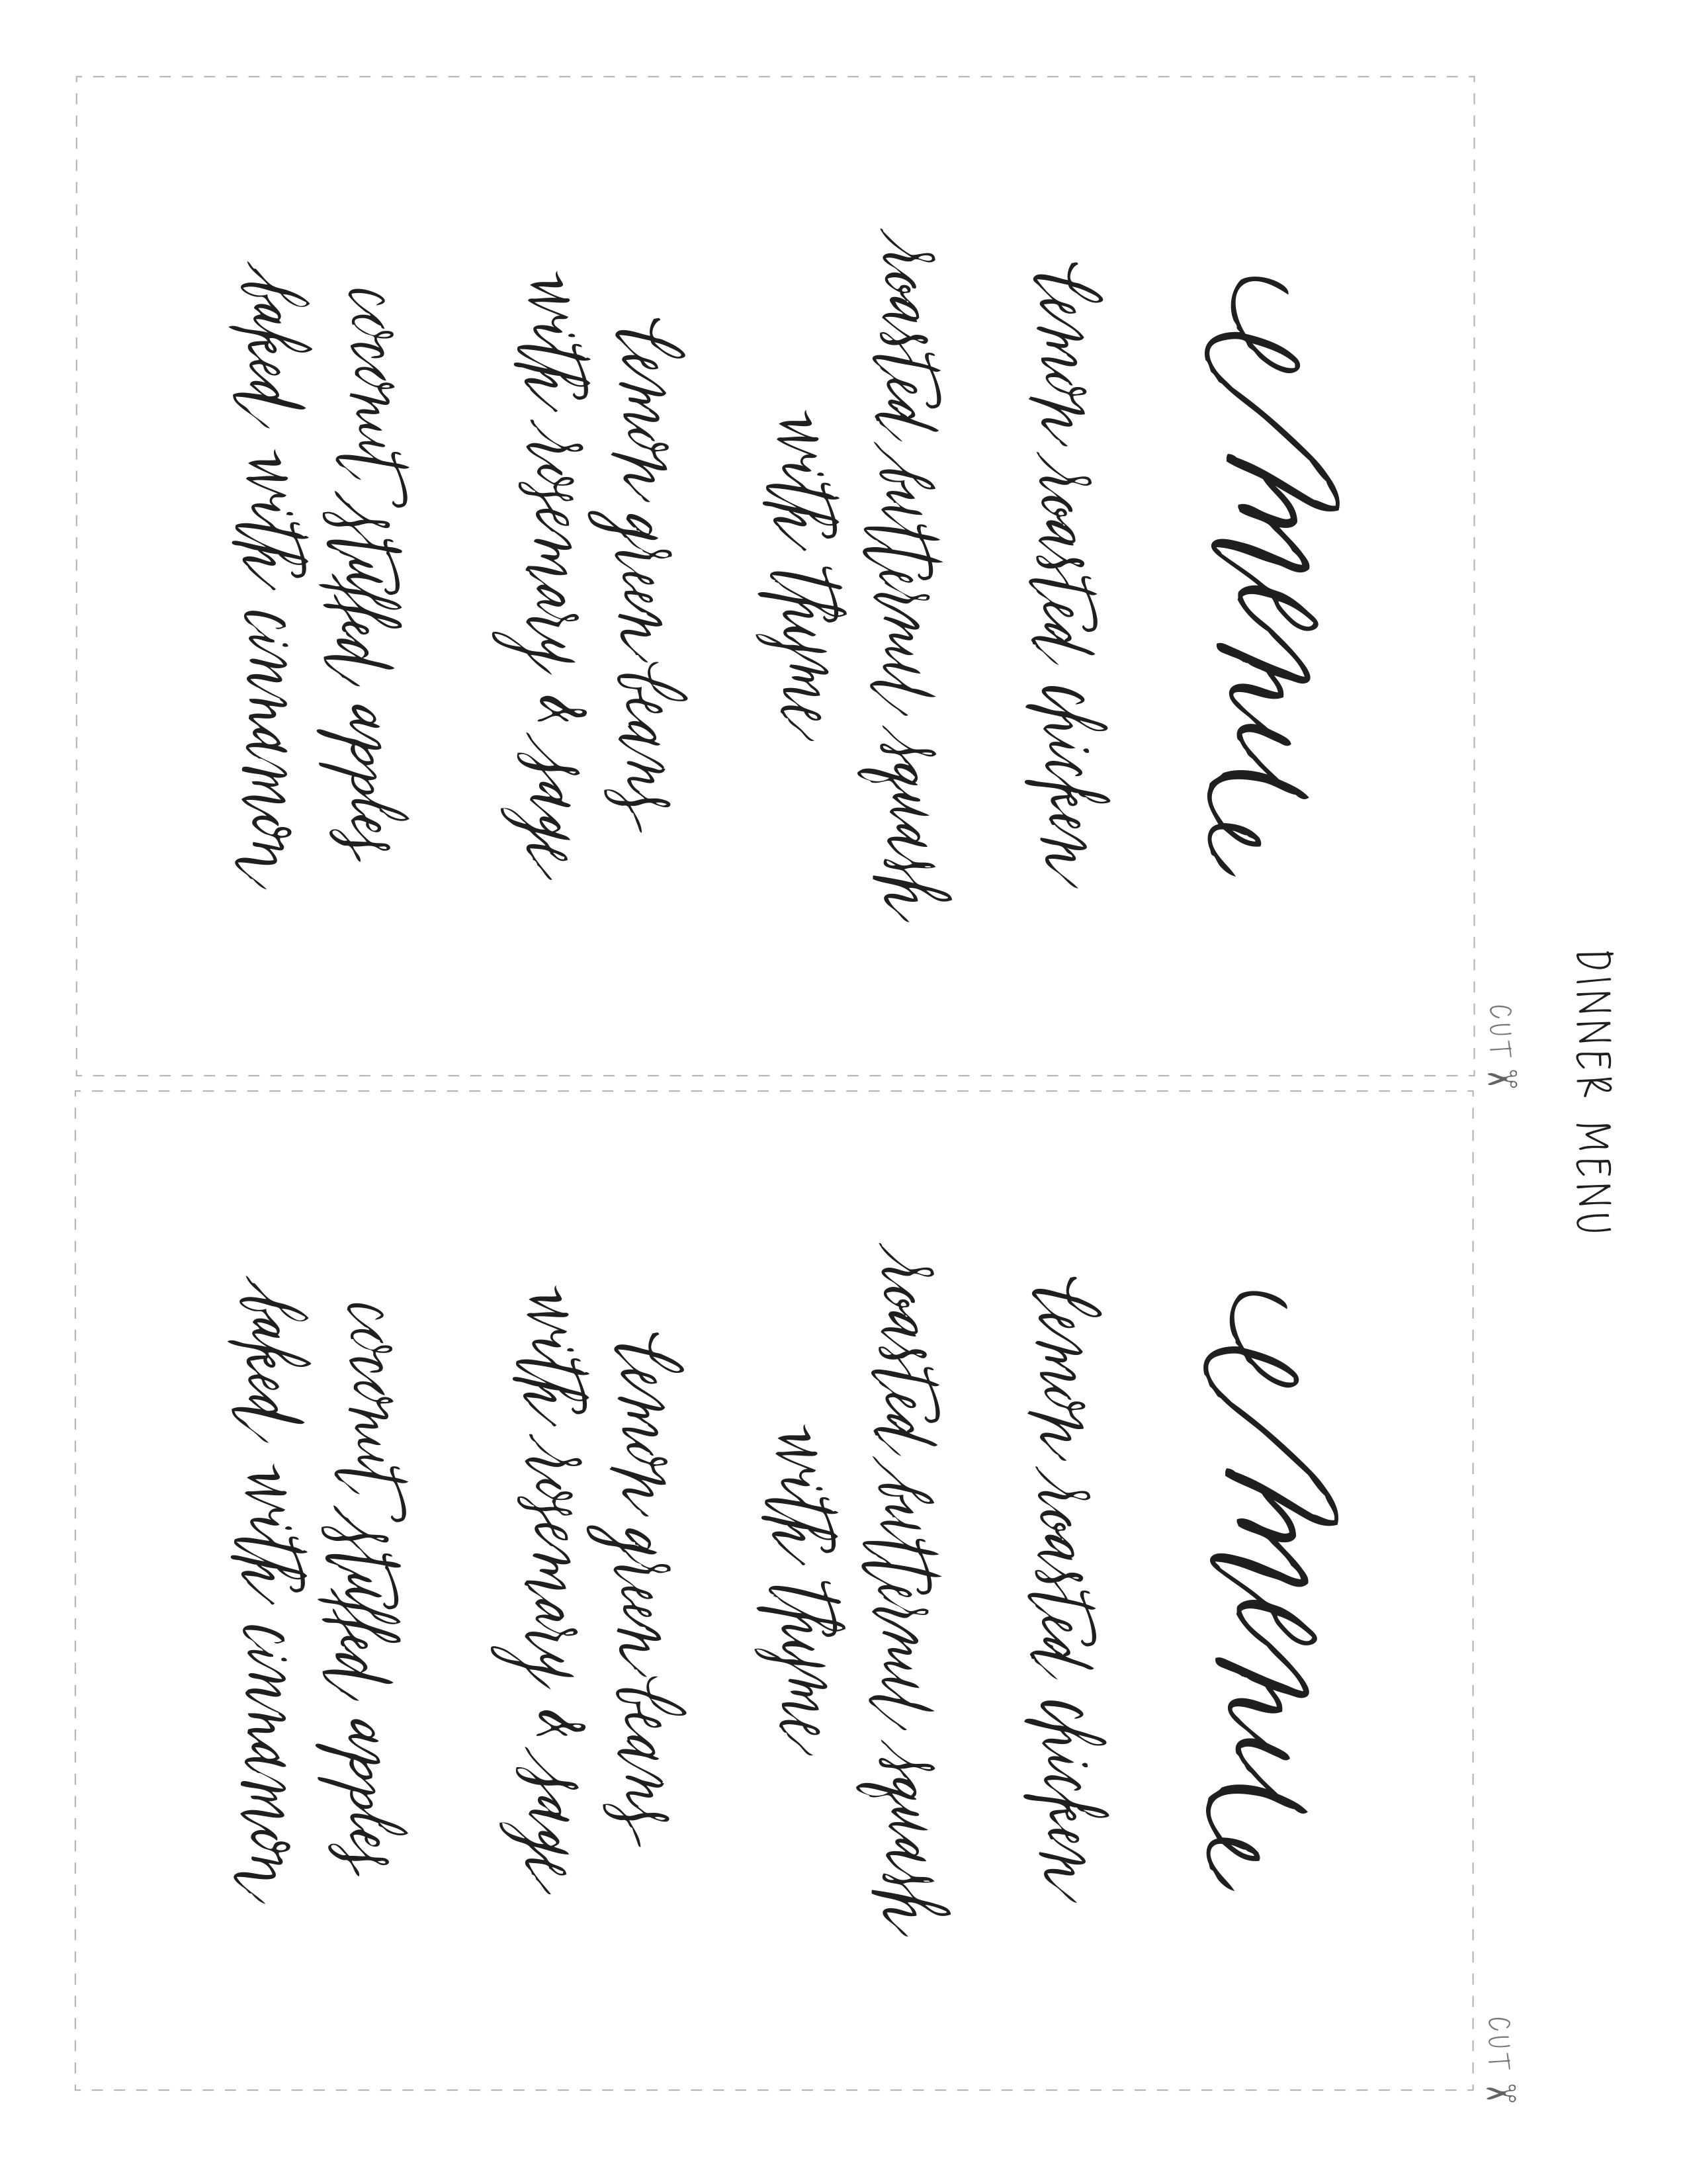 DINNER MENU
CUT
menu
lemon roasted chicken
roasted butternut squash
with thyme
lemon green beans
with rosemary & sage
coconut stuffed apples
baked with cinnamon
CUT
menu
lemon roasted chicken
roasted butternut squash
with thyme
lemon green beans
with rosemary & sage
coconut stuffed apples
baked with cinnamon